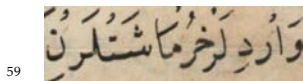 59 وَارُدِلَرْ خُرمَا شَتْلَرِنْ